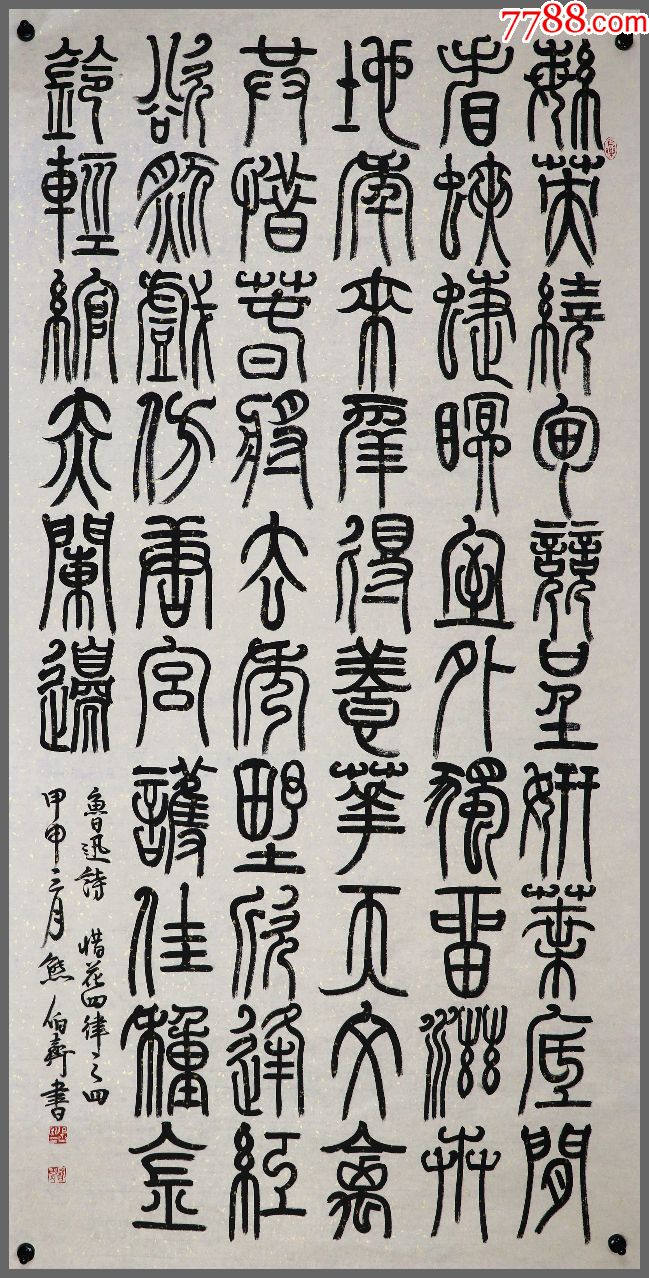 7788.com
繁英繞甸競呈妍葉底閒
看蛺蝶眠室外獨留滋卉
地年來幸得養華天文禽
共惜春將去秀野欣逢紅
欲然戲仿唐宮護佳種金
鈴輕綰赤闌邊
魯迅詩 惜花四律之四
甲申三月熊伯齊書